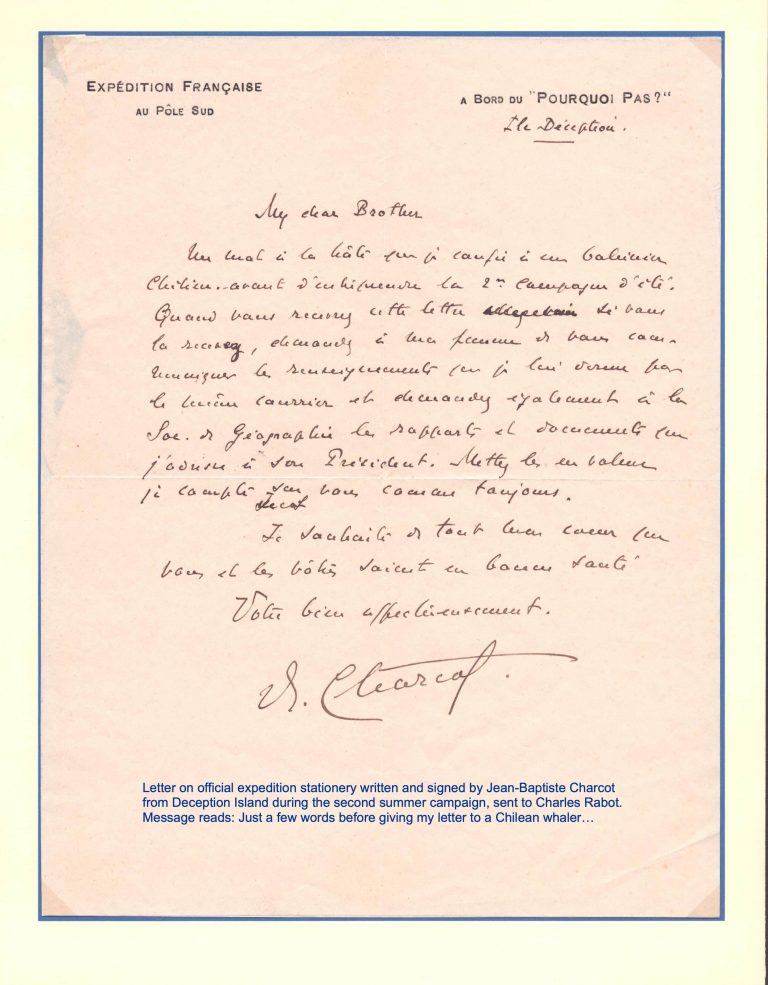 EXPÉDITION FRANÇAISE
AU PÔLE SUD
A BORD DU "POURQUOI PAS?"
Ile Déception.
My dear Brother
Un mot à la hâte que je confie à un baleinier
Chilien avant d'entreprendre la 2me Campagne d'été.
Quand vous recevrez cette lettre si vous
la recevez, demandez à ma femme de vous com-
muniquer les renseignements que je lui donne par
le même courrier et demandez également à la
Soc. de Géographie les rapports et documents que
j'adresse à son Président. Mettez les en valeur
je compte sur vous comme toujours.
Je souhaite de tout mon coeur que
vous et les vôtres soient en bonne santé
Votre bien affectueusement.
Charcot.
Letter on official expedition stationery written and signed by Jean-Baptiste Charcot
from Deception Island during the second summer campaign, sent to Charles Rabot.
Message reads: Just a few words before giving my letter to a Chilean whaler…